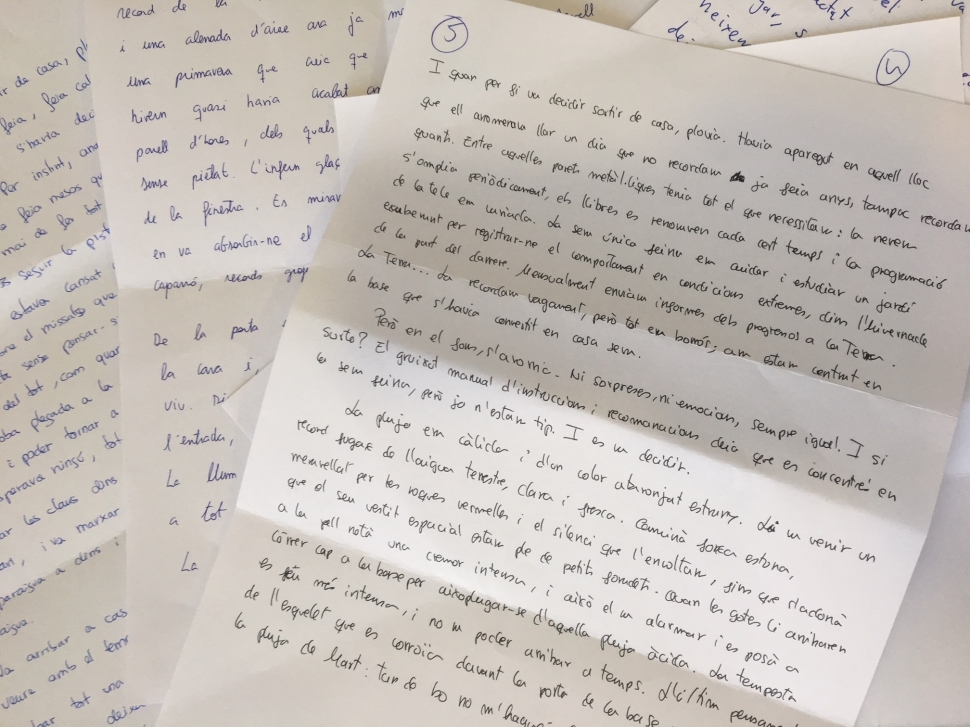 r de casa, pl
feia, feia cal
s'havia deci
Per instint, ana
feia mesos qu
mai de los tot
seguir la pist
estava cansat
el missatge que
sense pensar-s
del tot, com quan
pegada a la
i poder tornar a
esperava ningú, tot
les claus dins
i va marxar
paraigua a dins i
arribar a cas
veure amb el tems
tot una
deixa
record de la
i una alenada d'aire ara ja
una primavera que aix que
hivern quasi havia acabat
parell d'hores, dels quals
sense pietat. L'infern glaç
de la finestra. Es mirav
en va absorbir-ne el
caparró, records
De la porta
la cara i,
viu. Di
l'entrada,
La llum
a tot
La
4
5
I quan per fi va decidir sortir de casa, plovia. Havia aparegut en aquell lloc
que ell anomenava llar un dia que no recordava ja feia anys, tampoc recordava
quants. Entre aquelles parets metàl·liques tenia tot el que necessitava: la nevera
s'omplia periòdicament, els llibres es renovaven cada cert temps i la programació
de la tele era variada. La seva única feina era cuidar i estudiar un jardí
exuberant per registrar-ne el comportament en condicions extremes, dins l'hivernacle
de la part del darrere. Mensualment enviava informes dels progressos a la Terra.
La Terra... La recordava vagament, però tot era borrós; ara estava centrat en
la base que s'havia convertit en casa seva.
Però en el fons, s'avorria. Ni sorpreses, ni emocions, sempre igual. I si
sortís? El gruixut manual d'instruccions i recomanacions deia que es concentrés en
la seva feina, però ja n'estava tip. I es va decidir.
La pluja era càlida i d'un color ataronjat estrany. Li va venir un
record fugaç de l'aigua terrestre, clara i fresca. Caminà força estona,
meravellat per les roques vermelles i el silenci que l'envoltava, fins que s'adonà
que el seu vestit espacial estava ple de petits forats. Quan les gotes li arribaren
a la pell notà una cremor intensa, i això el va alarmar i es posà a
córrer cap a la base per aixoplugar-se d'aquella pluja àcida. La tempesta
es féu més intensa, i no va poder arribar a temps. L'últim pensament
de l'esquelet que es corroïa davant la porta de la base
la pluja de Mart: tan de bo no m'hagu